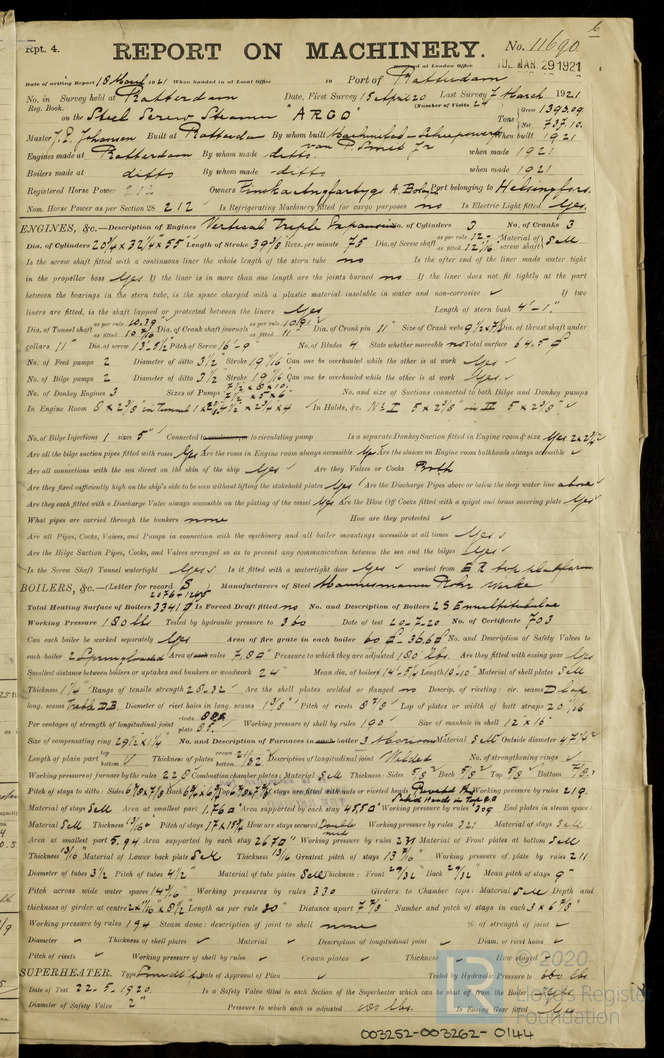 6
Rpt. 4.
REPORT ON MACHINERY. No. 11690
Received at London Office MAR. 29 1921
Date of writing Report 18 March 1921 When handed in at Local Office 19 Port of Rotterdam
No. in Survey held at Rotterdam Date, First Survey 15 April 20 Last Survey 7 March 1921
Reg. Book. (Number of Visits 24
on the Steel Screw Steamer "ARGO" Tons Gross 1393.09 Net 737.10
Master J. E. Johansen Built at Rotterdam By whom built Machinefab. & Scheepswerf van P. Smit Jr When built 1921
Engines made at Rotterdam By whom made ditto. when made 1921
Boilers made at ditto By whom made ditto. when made 1921
Registered Horse Power 212 Owners Finska Angfartygs A. Bolaget Port belonging to Helsingfors.
Nom. Horse Power as per Section 28 212 Is Refrigerating Machinery fitted for cargo purposes no Is Electric Light fitted Yes.
ENGINES, &c.—Description of Engines Vertical Triple Expansion No. of Cylinders 3 No. of Cranks 3
Dia. of Cylinders Length of Stroke 39 3/8 Revs. per minute 75 Dia. of Screw shaft as per rule as fitted Material of screw shaft Steel
Is the screw shaft fitted with a continuous liner the whole length of the stern tube no Is the after end of the liner made water tight
in the propeller boss Yes If the liner is in more than one length are the joints burned no If the liner does not fit tightly at the part
between the bearings in the stern tube, is the space charged with a plastic material insoluble in water and non-corrosive ✓ If two
liners are fitted, is the shaft lapped or protected between the liners Yes Length of stern bush 4'-1"
Dia. of Tunnel shaft as per rule 10.39" as fitted Dia. of Crank shaft journals as per rule 10.91" as fitted 11" Dia. of Crank pin 11" Size of Crank webs Dia. of thrust shaft under
collars 11" Dia. of screw Pitch of Screw 16'-9" No. of Blades 4 State whether moveable no Total surface 64.5
No. of Feed pumps 2 Diameter of ditto 3 1/2 Stroke 19 11/16 Can one be overhauled while the other is at work Yes
No. of Bilge pumps 2 Diameter of ditto 3 1/2 Stroke 19 11/16 Can one be overhauled while the other is at work Yes
No. of Donkey Engines 3 Sizes of Pumps No. and size of Suctions connected to both Bilge and Donkey pumps
In Engine Room In Holds, &c.
No. of Bilge Injections 1 sizes 5" Connected to condenser, or to circulating pump Is a separate Donkey Suction fitted in Engine room & size Yes
Are all the bilge suction pipes fitted with roses Yes Are the roses in Engine room always accessible Yes Are the sluices on Engine room bulkheads always accessible ✓
Are all connections with the sea direct on the skin of the ship Yes Are they Valves or Cocks Both
Are they fixed sufficiently high on the ship's side to be seen without lifting the stokehold plates Yes Are the Discharge Pipes above or below the deep water line above
Are they each fitted with a Discharge Valve always accessible on the plating of the vessel Yes Are the Blow Off Cocks fitted with a spigot and brass covering plate Yes
What pipes are carried through the bunkers none How are they protected ✓
Are all Pipes, Cocks, Valves, and Pumps in connection with the machinery and all boiler mountings accessible at all times Yes
Are the Bilge Suction Pipes, Cocks, and Valves arranged so as to prevent any communication between the sea and the bilges Yes
Is the Screw Shaft Tunnel watertight Yes Is it fitted with a watertight door Yes worked from E R top platform
BOILERS, &c.—(Letter for record S) Manufacturers of Steel Mannesmann Rohr Werke
Total Heating Surface of Boilers 3341 Is Forced Draft fitted no No. and Description of Boilers 2 S E multitubular
Working Pressure 180 lbs Tested by hydraulic pressure to 360 Date of test 20-7-20 No. of Certificate 703
Can each boiler be worked separately Yes Area of fire grate in each boiler No. and Description of Safety Valves to
each boiler 2 Spring loaded Area of each valve Pressure to which they are adjusted 180 lbs. Are they fitted with easing gear Yes
Smallest distance between boilers or uptakes and bunkers or woodwork 24" Mean dia. of boilers Length Material of shell plates Steel
Thickness 1 1/4 Range of tensile strength 28-32 Are the shell plates welded or flanged no Descrip. of riveting: cir. seams D lap
long. seams Treble D.B. Diameter of rivet holes in long. seams Pitch of rivets 8 7/8 Lap of plates or width of butt straps 20 11/16
Per centages of strength of longitudinal joint rivets plate Working pressure of shell by rules 190 Size of manhole in shell 12 x 16
Size of compensating ring 29 1/2 x 1 1/4 No. and Description of Furnaces in each boiler 3 Morison Material Steel Outside diameter
Length of plain part top bottom Thickness of plates crown bottom 21/32 Description of longitudinal joint Welded No. of strengthening rings ✓
Working pressure of furnace by the rules 228 Combustion chamber plates: Material Steel Thickness: Sides 5/8 Back 5/8 Top 5/8 Bottom 7/8
Pitch of stays to ditto: Sides Back Top If stays are fitted with nuts or riveted heads Working pressure by rules 219.
Material of stays Steel Area at smallest part 1.76 Area supported by each stay Working pressure by rules 309 End plates in steam space:
Material Steel Thickness Pitch of stays How are stays secured Double nuts Working pressure by rules 321 Material of stays Steel
Area at smallest part 5.94 Area supported by each stay 267 Working pressure by rules 231 Material of Front plates at bottom Steel
Thickness Material of Lower back plate Steel Thickness Greatest pitch of stays Working pressure of plate by rules 211
Diameter of tubes 3 1/2 Pitch of tubes 4 1/2 Material of tube plates Steel Thickness: Front 29/32 Back 29/32 Mean pitch of stays 9"
Pitch across wide water spaces 14 3/16 Working pressures by rules 330 Girders to Chamber tops: Material Steel Depth and
thickness of girder at centre Length as per rule 30" Distance apart Number and pitch of stays in each 3 x 6 7/8"
Working pressure by rules 194 Steam dome: description of joint to shell none % of strength of joint ✓
Diameter ✓ Thickness of shell plates ✓ Material ✓ Description of longitudinal joint ✓ Diam. of rivet holes ✓
Pitch of rivets ✓ Working pressure of shell by rules ✓ Crown plates ✓ Thickness ✓ How stayed ✓
SUPERHEATER. Type Date of Approval of Plan ✓ Tested by Hydraulic Pressure to 600 lbs
Date of Test 22-5-1920. Is a Safety Valve fitted to each Section of the Superheater which can be shut off from the Boiler Yes
Diameter of Safety Valve 2" Pressure to which each is adjusted lbs. Is Easing Gear fitted Yes
© 2020
LR Lloyd's Register Foundation
003252-003262-0144